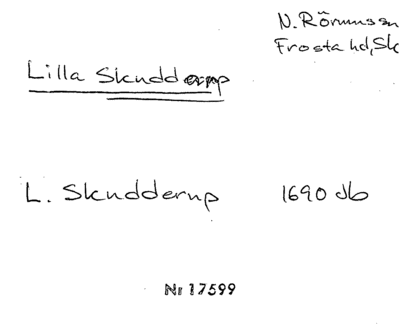 N. Rörums sn
Frosta hd, Sk
Lilla Skudderup
L. Skudderup 1690 Jb
Nr 17599